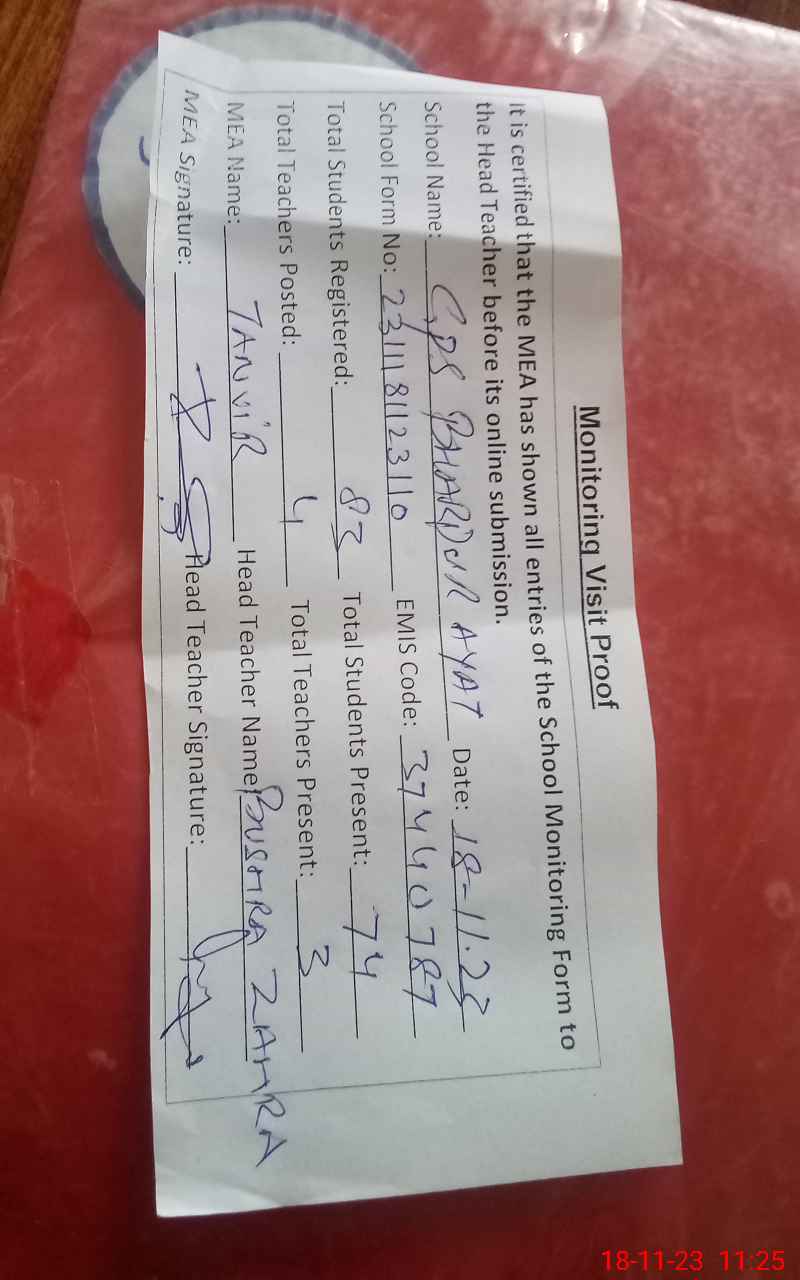 Monitoring Visit Proof
It is certified that the MEA has shown all entries of the School Monitoring Form to
the Head Teacher before its online submission.
School Name: GPS BHARPUR AYAT Date: 18-11-23
School Form No: 2311181123110 EMIS Code: 37440787
Total Students Registered: 83 Total Students Present: 74
Total Teachers Posted: 4 Total Teachers Present: 3
MEA Name: TANVIR Head Teacher Name: BUSHRA ZAHRA
MEA Signature: Head Teacher Signature:
18-11-23 11:25